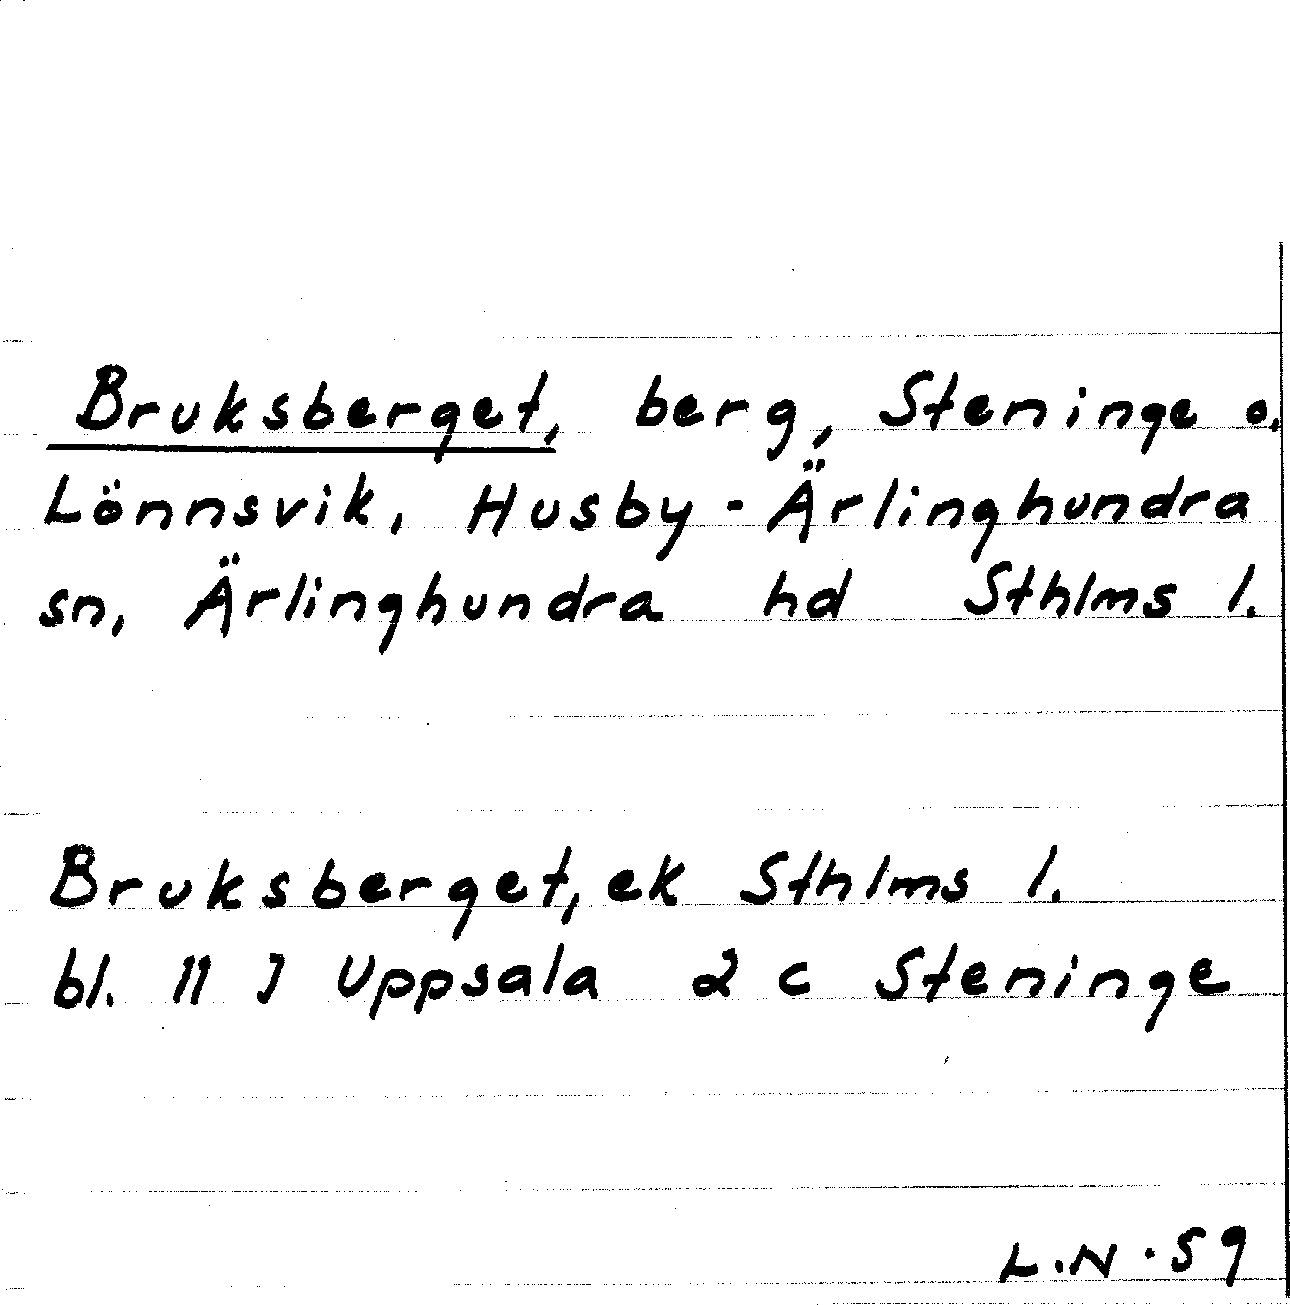 Bruksberget, berg, Steninge o.
Lönnsvik, Husby-Ärlinghundra
sn, Ärlinghundra hd Sthlms l.
Bruksberget, ek Sthlms l.
bl. 11 J Uppsala 2 c Steninge
L.N.59